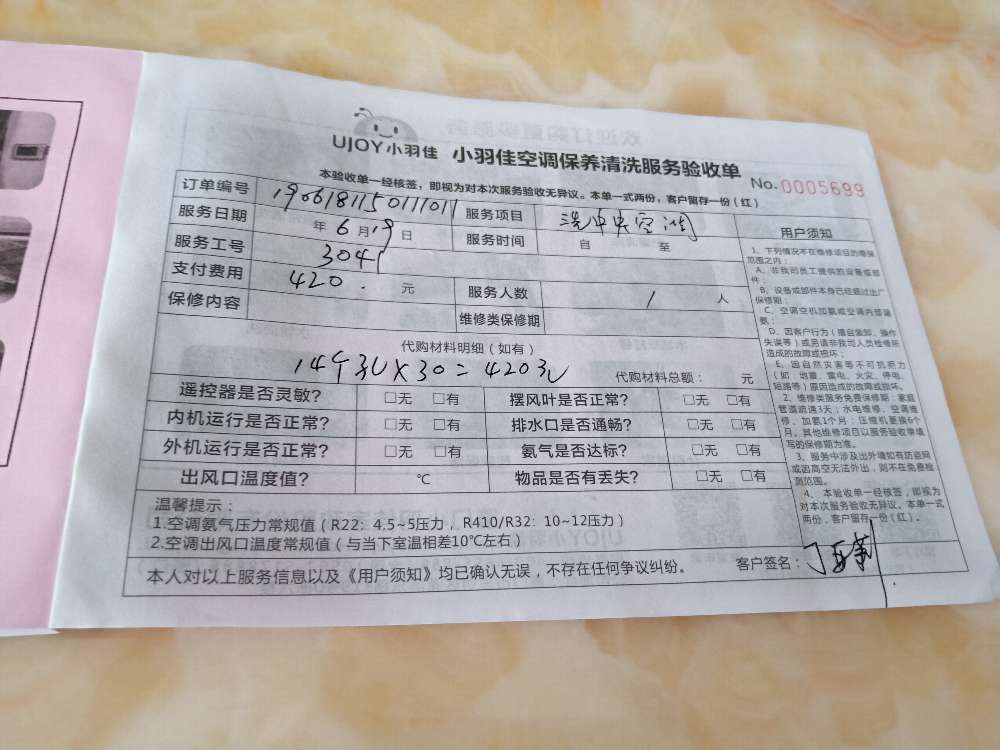 UJOY小羽佳 小羽佳空调保养清洗服务验收单
本验收单一经核签，即视为对本次服务验收无异议。本单一式两份，客户留存一份（红） No.0005699
订单编号 190618115011701 服务项目 洗中央空调
服务日期 年 6 月 19 日 服务时间 自 至
服务工号 3041
支付费用 420. 元 服务人数 1 人
保修内容 维修类保修期
代购材料明细（如有）
14个 X30= 420 代购材料总额： 元
遥控器是否灵敏? □无 □有 摆风叶是否正常? □无 □有
内机运行是否正常? □无 □有 排水口是否通畅? □无 □有
外机运行是否正常? □无 □有 氨气是否达标? □无 □有
出风口温度值? ℃ 物品是否有丢失? □无 □有
温馨提示：
1.空调氨气压力常规值（R22：4.5~5压力，R410/R32：10~12压力）
2.空调出风口温度常规值（与当下室温相差10℃左右）
本人对以上服务信息以及《用户须知》均已确认无误，不存在任何争议纠纷。 客户签名：
用户须知
1、下列情况不在维修项目的维保
范围之内：
A、非我司员工提供的设备或部
件；
B、设备或部件本身已经超过出厂
保修期；
C、空调空机加氨或空调内部漏
氨；
D、因客户行为（擅自装卸、操作
失误等）或另请非我司人员检修所
造成的故障或损坏；
E、因自然灾害等不可抗拒力
（如：地震、雷电、火灾、停电、
短路等）原因造成的故障或损坏。
2、维修类服务免费保修期：家庭
管道疏通3天；水电维修、空调维
修、加氨1个月；压缩机更换6个
月。其他维修项目以服务验收单填
写的保修期为准。
3、服务中涉及出外墙如有防盗网
或因高空无法外出，则不在免费检
测范围。
4、本验收单一经核签，即视为
对本次服务验收无异议。本单一式
两份，客户留存一份（红）。